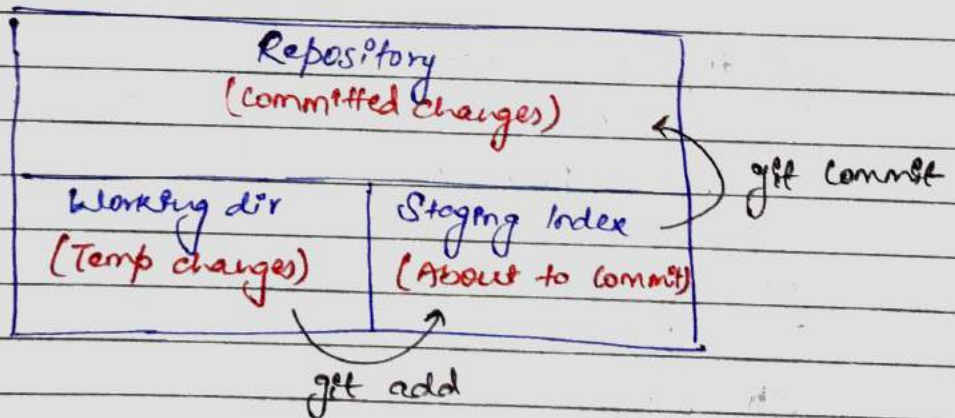 Repository
(Committed changes)
git commit
Working dir
(Temp changes)
Staging Index
(About to commit)
git add